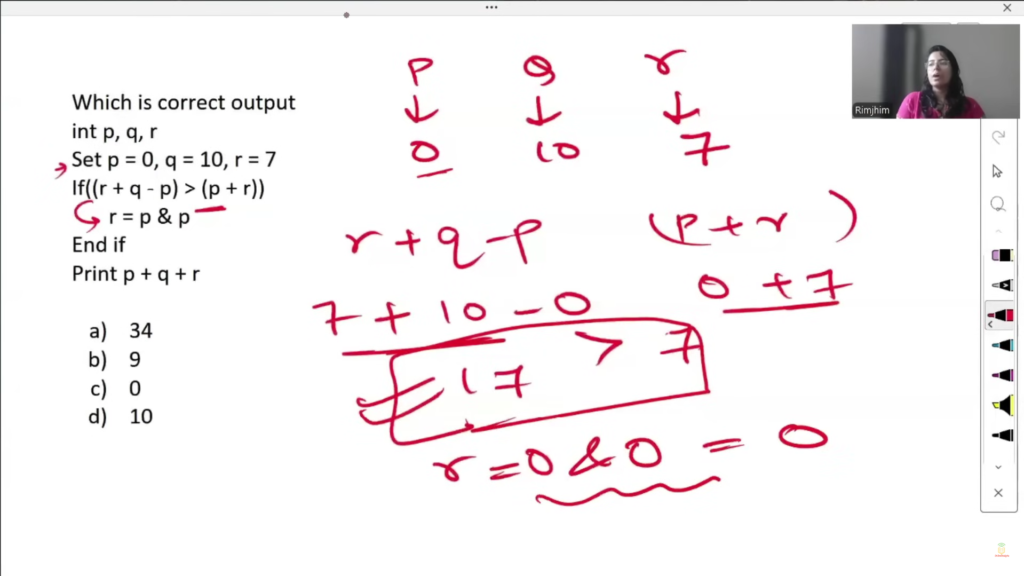 Which is correct output
int p, q, r
Set p = 0, q = 10, r = 7
If((r + q - p) > (p + r))
r = p & p
End if
Print p + q + r
a) 34
b) 9
c) 0
d) 10
p Q r
0 10 7
r + q - p (p + r)
7 + 10 - 0 0 + 7
17 > 7
r = 0 & 0 = 0
Rimjhim